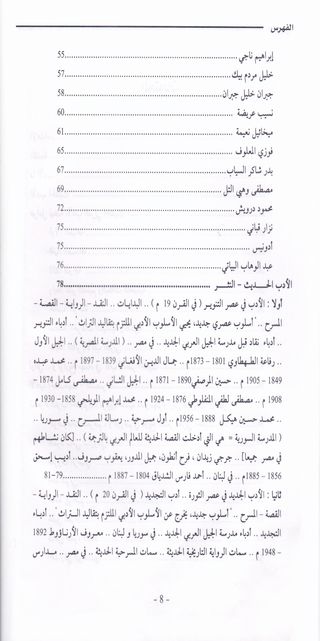 الفهرس
إبراهيم ناجي 55
خليل مردم بيك 57
جبران خليل جبران 58
نسيب عريضة 60
ميخائيل نعيمة 61
فوزي المعلوف 65
بدر شاكر السياب 67
مصطفى وهبي التل 69
محمود درويش 72
نزار قباني 75
أدونيس 75
عبد الوهاب البياتي 76
الأدب الحـديث - النثــر 78
أولا : الأدب في عصر التنوير ( في القرن 19 م ) .. البدايات .. النقد - الرواية - القصة -
المسرح .. "أسلوب عصري جديد، يحيي الأسلوب الأدبي الملتزم بتقاليد التراث" .. أدباء التنوير
.. أدباء نقاد قبل مدرسة الجيل العربي الجديد .. في مصر .. ( المدرسة المصرية ) .. الجيل الأول
.. رفاعة الطهطاوي 1801 - 1873م .. جمال الدين الأفغاني 1839 - 1897 م .. محمد عبده
1849 - 1905 م .. حسين المرصفي 1890 - 1871 م .. الجيل الثاني .. مصطفى كامل 1874 -
1908 م .. مصطفى لطفي المنفلوطي 1876 - 1924 م .. محمد إبراهيم المويلحي 1858 - 1930 م
.. محمد حسين هيكل 1888 - 1956م .. أول مسرحية .. رسالة المسرح .. في سوريا ..
( المدرسة السورية = هي التي أدخلت القصة الحديثة للعالم العربي بالترجمة ) .. [كان نشاطهم
في مصر جميعا] .. جرجي زيدان، فرح أنطون، جميل المدور، يعقوب صروف.. أديب إسحق
1856 - 1885م .. في لبنان .. أحمد فارس الشدياق 1804 - 1887 م 79-81
ثانيا : الأدب الجديد في عصر الثورة .. أدب التجديد ( في القرن 20 م ) .. النقد - الرواية -
القصة - المسرح .. "أسلوب جديد، يخرج عن الأسلوب الأدبي الملتزم بتقاليد التراث" .. أدباء
التجديد .. أدباء مدرسة الجيل العربي الجديد .. في سوريا و لبنان .. معروف الأرناؤوط 1892
- 1948 م .. سمات الرواية التاريخية الحديثة .. سمات المسرحية الحديثة .. في مصر .. مدارس
- 8 -